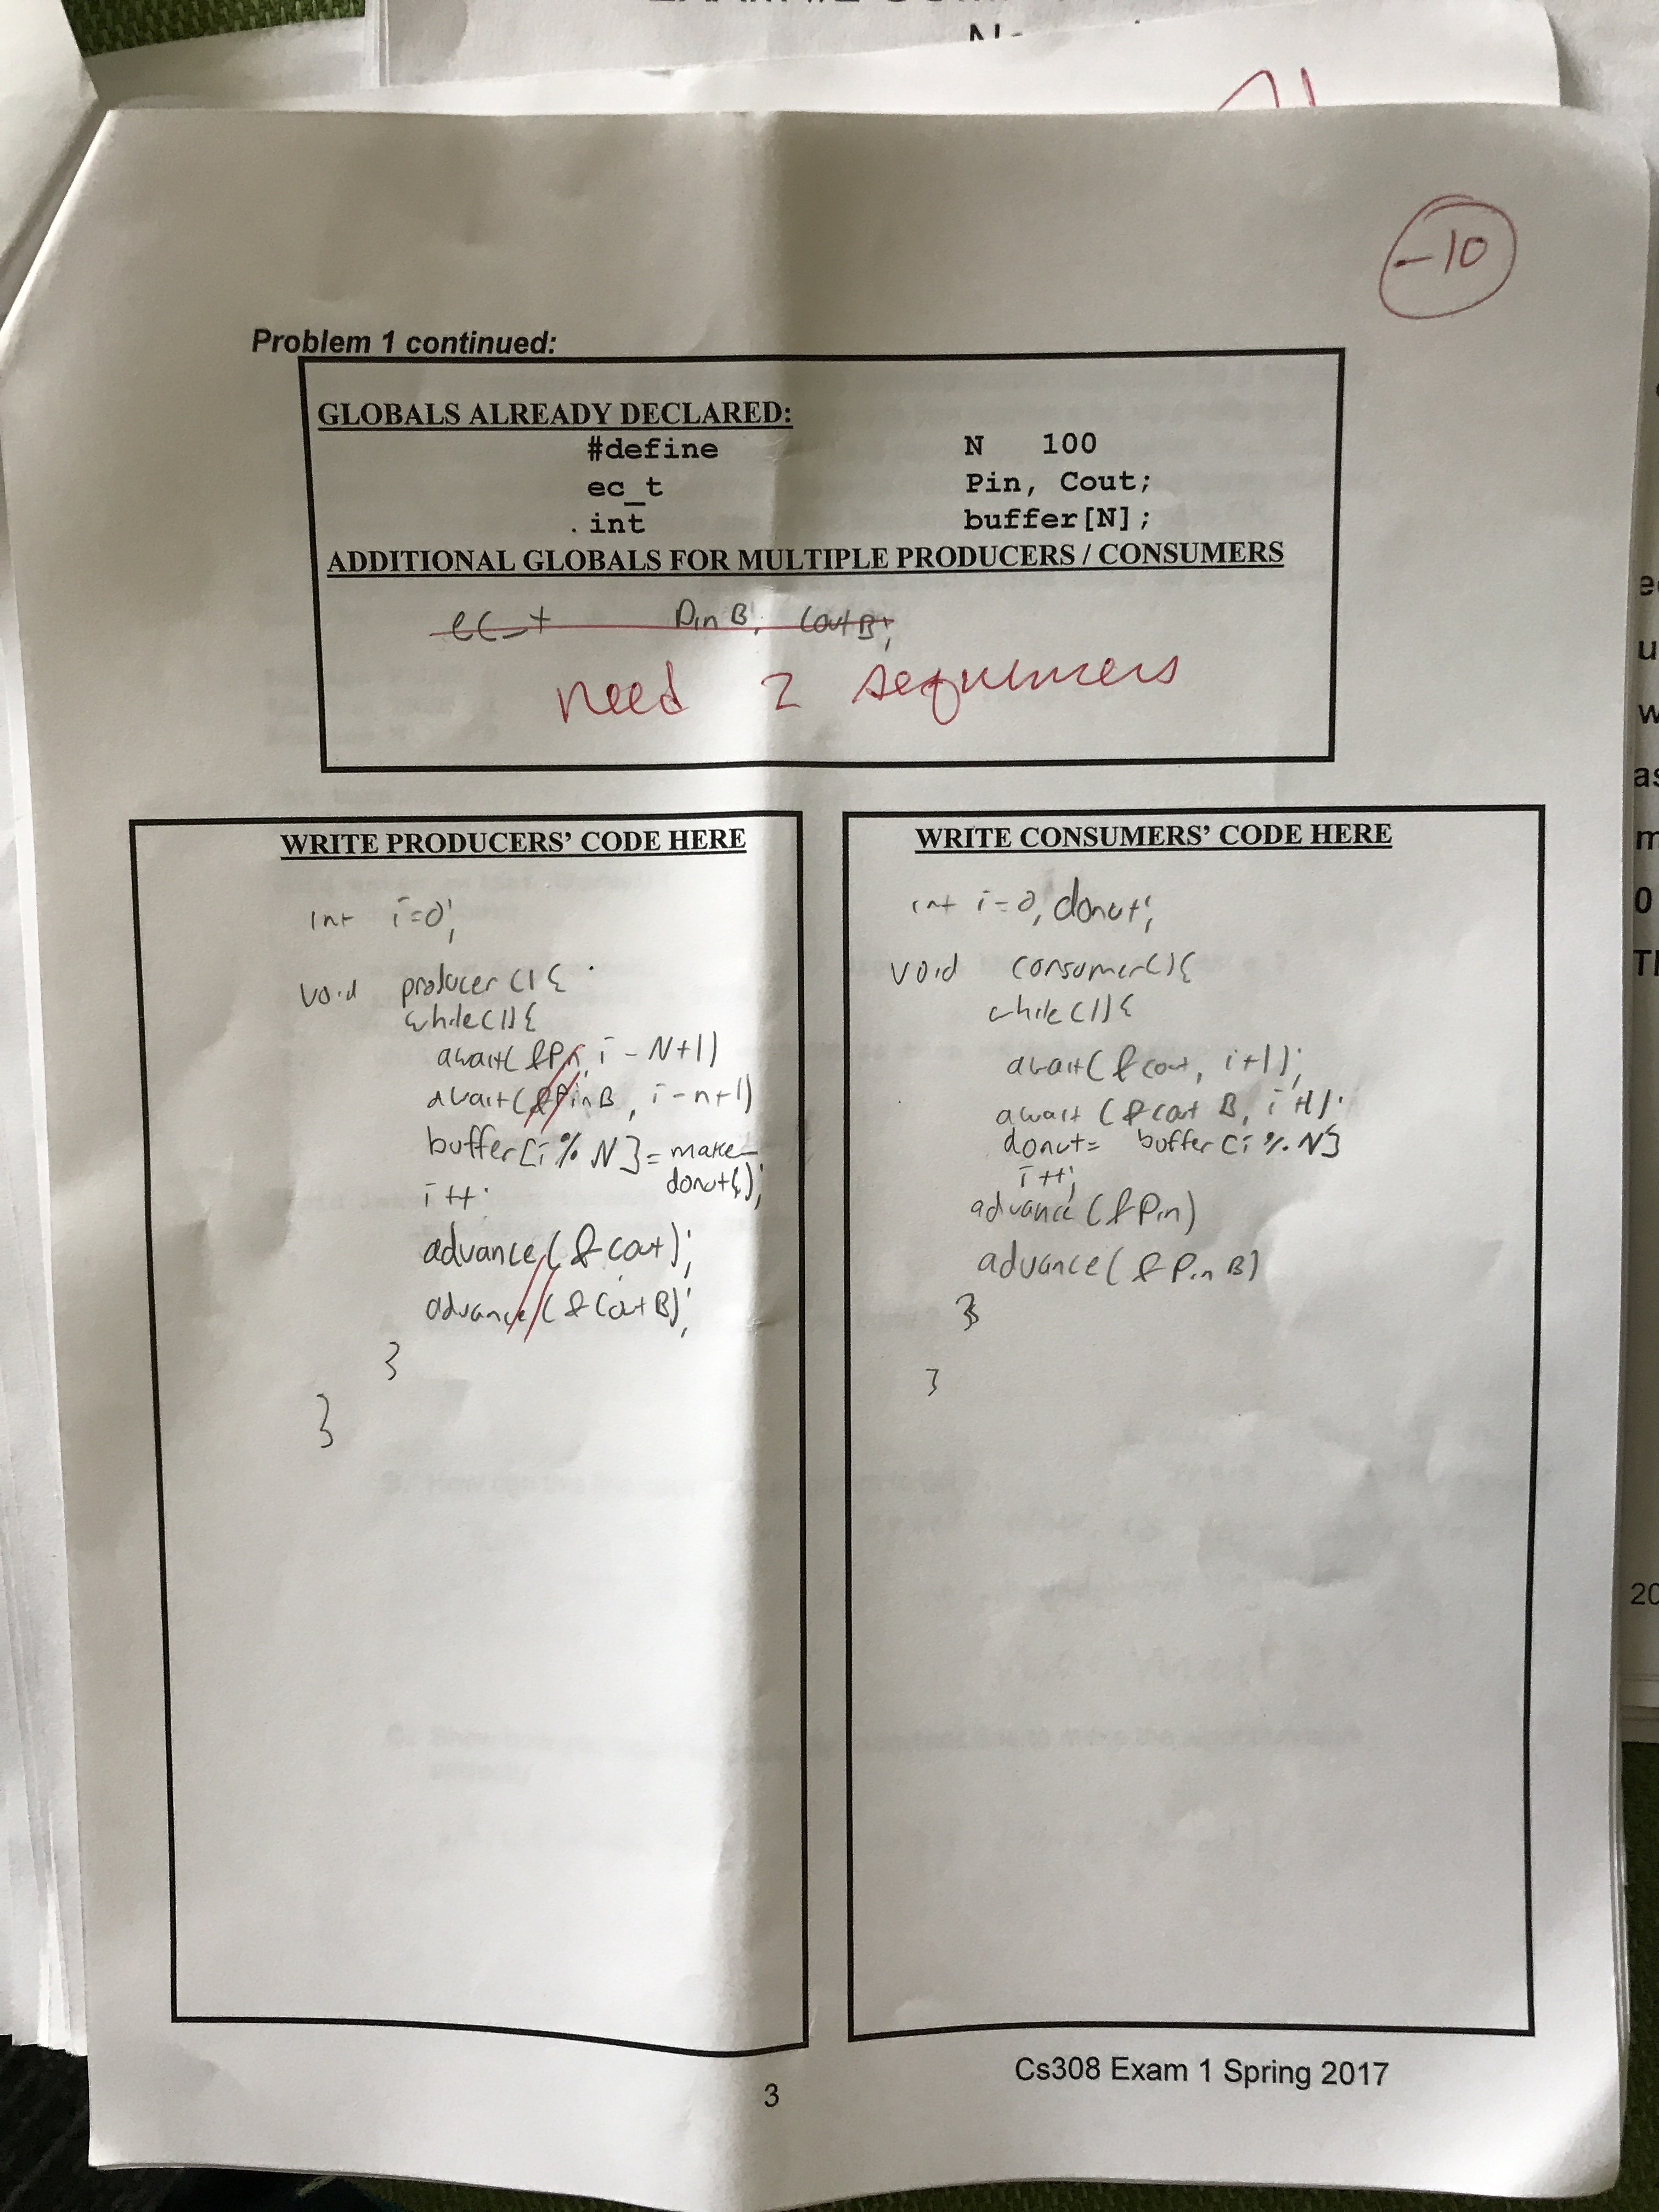 -10
Problem 1 continued:
GLOBALS ALREADY DECLARED:
#define N 100
ec_t Pin, Cout;
int buffer[N];
ADDITIONAL GLOBALS FOR MULTIPLE PRODUCERS / CONSUMERS
ec_t Pin B, Cout B;
need 2 sequencers
WRITE PRODUCERS' CODE HERE
int i=0;
void producer() {
while(1){
await(&Pin, i-N+1)
await(&PinB, i-n+1)
buffer[i%N]=make_
donut();
i++;
advance(&Cout);
advance(&CoutB);
}
}
WRITE CONSUMERS' CODE HERE
int i=0, donut;
void consumer(){
while(1){
await(&cout, i+1);
await(&cout B, i+1);
donut= buffer[i%N]
i++;
advance(&Pin)
advance(&Pin B)
}
}
Cs308 Exam 1 Spring 2017
3